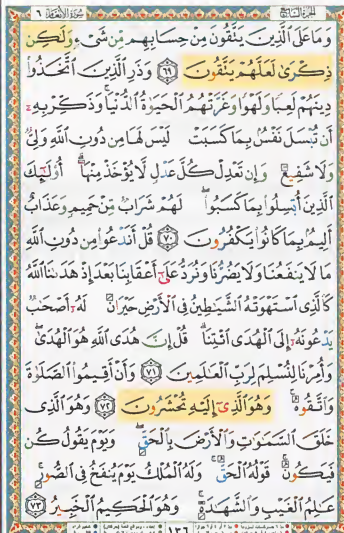 الجزء السابع
سورة الانعام ٦
وَمَا عَلَى ٱلَّذِينَ يَتَّقُونَ مِنْ حِسَابِهِم مِّن شَىْءٍ وَلَٰكِن
ذِكْرَىٰ لَعَلَّهُمْ يَتَّقُونَ ﴿٦٩﴾ وَذَرِ ٱلَّذِينَ ٱتَّخَذُوا۟
دِينَهُمْ لَعِبًا وَلَهْوًا وَغَرَّتْهُمُ ٱلْحَيَوٰةُ ٱلدُّنْيَا وَذَكِّرْ بِهِۦٓ
أَن تُبْسَلَ نَفْسٌۢ بِمَا كَسَبَتْ لَيْسَ لَهَا مِن دُونِ ٱللَّهِ وَلِىٌّ
وَلَا شَفِيعٌ وَإِن تَعْدِلْ كُلَّ عَدْلٍ لَّا يُؤْخَذْ مِنْهَآ أُو۟لَٰٓئِكَ
ٱلَّذِينَ أُبْسِلُوا۟ بِمَا كَسَبُوا۟ لَهُمْ شَرَابٌ مِّنْ حَمِيمٍ وَعَذَابٌ
أَلِيمٌۢ بِمَا كَانُوا۟ يَكْفُرُونَ ﴿٧٠﴾ قُلْ أَنَدْعُوا۟ مِن دُونِ ٱللَّهِ
مَا لَا يَنفَعُنَا وَلَا يَضُرُّنَا وَنُرَدُّ عَلَىٰٓ أَعْقَابِنَا بَعْدَ إِذْ هَدَىٰنَا ٱللَّهُ
كَٱلَّذِى ٱسْتَهْوَتْهُ ٱلشَّيَٰطِينُ فِى ٱلْأَرْضِ حَيْرَانَ لَهُۥٓ أَصْحَٰبٌ
يَدْعُونَهُۥٓ إِلَى ٱلْهُدَى ٱئْتِنَا قُلْ إِنَّ هُدَى ٱللَّهِ هُوَ ٱلْهُدَىٰ
وَأُمِرْنَا لِنُسْلِمَ لِرَبِّ ٱلْعَٰلَمِينَ ﴿٧١﴾ وَأَنْ أَقِيمُوا۟ ٱلصَّلَوٰةَ
وَٱتَّقُوهُ وَهُوَ ٱلَّذِىٓ إِلَيْهِ تُحْشَرُونَ ﴿٧٢﴾ وَهُوَ ٱلَّذِى
خَلَقَ ٱلسَّمَٰوَٰتِ وَٱلْأَرْضَ بِٱلْحَقِّ وَيَوْمَ يَقُولُ كُن
فَيَكُونُ قَوْلُهُ ٱلْحَقُّ وَلَهُ ٱلْمُلْكُ يَوْمَ يُنفَخُ فِى ٱلصُّورِ
عَٰلِمُ ٱلْغَيْبِ وَٱلشَّهَٰدَةِ وَهُوَ ٱلْحَكِيمُ ٱلْخَبِيرُ ﴿٧٣﴾
١٣٦